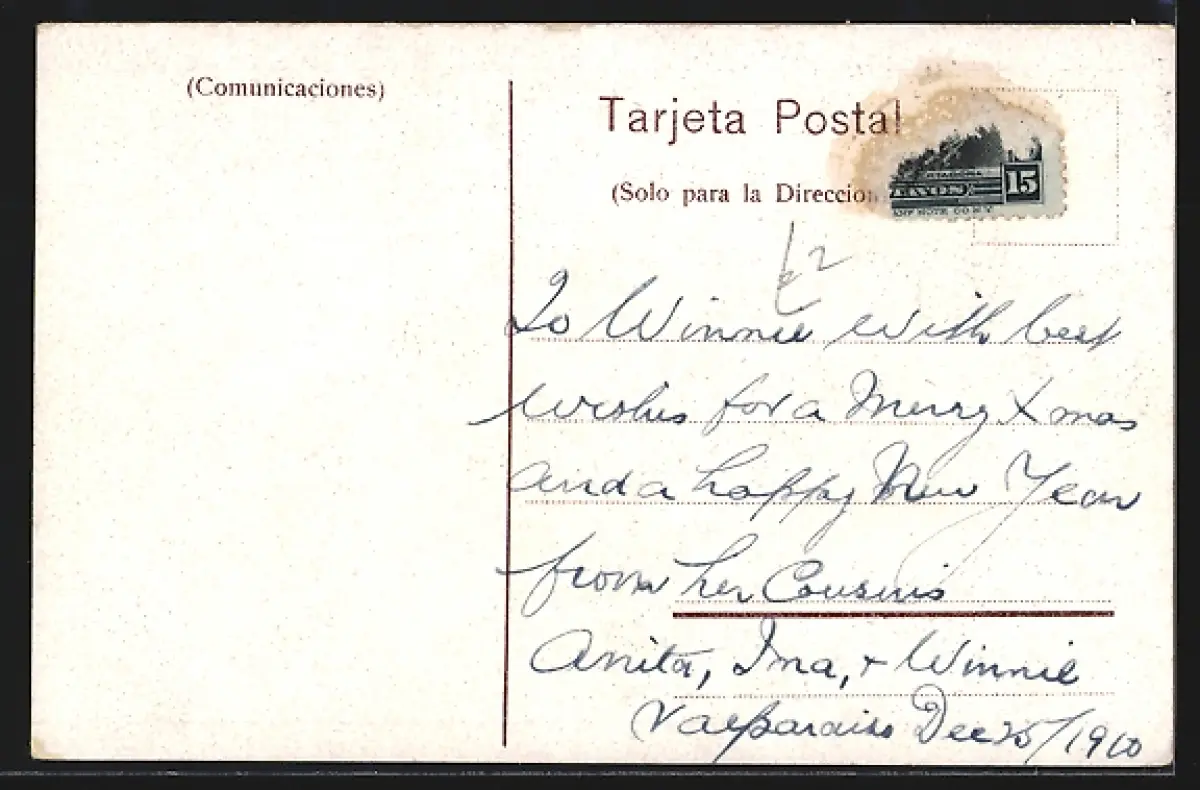 (Comunicaciones)
Tarjeta Postal
(Solo para la Direccion
15
To Winnie with best
wishes for a Merry Xmas
and a happy New Year
from her Cousins
Anita, Ina, + Winnie
Valparaiso Dec 25/1910